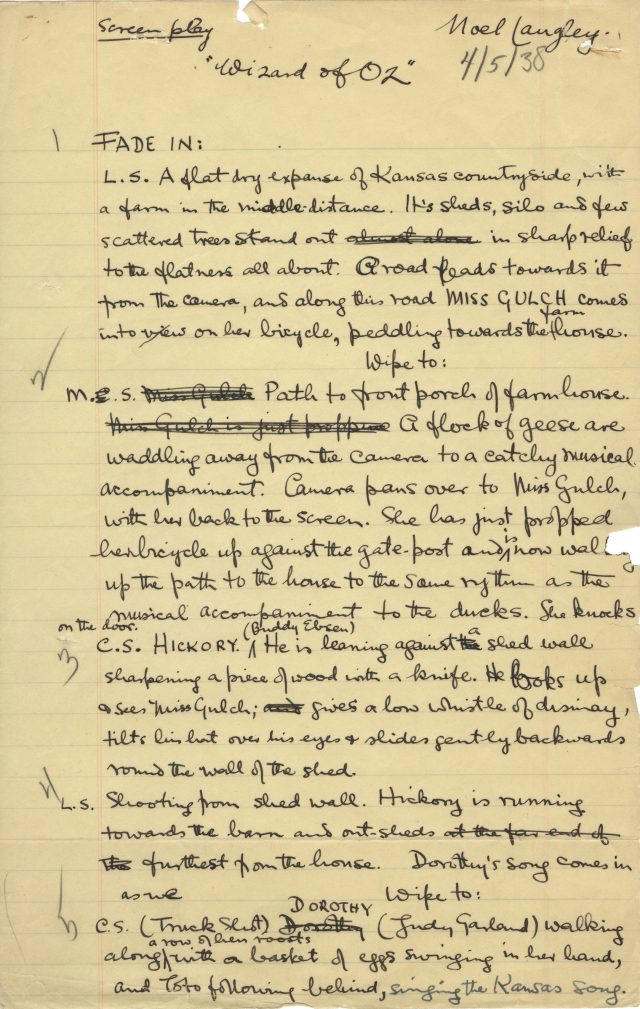 Screen play
Noel Langley.
4/5/38
"Wizard of Oz"
1 FADE IN:
L.S. A flat dry expanse of Kansas countryside, with
a farm in the middle distance. It's sheds, silo and few
scattered trees stand out almost alone in sharp relief
to the flatness all about. A road leads towards it
from the camera, and along this road MISS GULCH comes
into view on her bicycle, peddling towards the farm house.
Wipe to:
2
M.C.S. Miss Gulch Path to front porch of farmhouse.
Miss Gulch is just propping A flock of geese are
waddling away from the camera to a catchy musical
accompaniment. Camera pans over to Miss Gulch,
with her back to the screen. She has just propped
her bicycle up against the gate-post and is now
up the path to the house to the same rythum as the
musical accompaniment to the ducks. She knocks
on the door.
3 C.S. HICKORY. (Buddy Ebsen) He is leaning against the a shed wall
sharpening a piece of wood with a knife. He looks up
& sees Miss Gulch; and gives a low whistle of dismay,
tilts his hat over his eyes & slides gently backwards
round the wall of the shed.
4 L.S. Shooting from shed wall. Hickory is running
towards the barn and out-sheds at the far end of
the furthest from the house. Dorothy's song comes in
as we Wipe to:
5 C.S. (Truck Shot) Dorothy DOROTHY (Judy Garland) walking
along a row of hen roosts with a basket of eggs swinging in her hand,
and Toto following behind, singing the Kansas song.